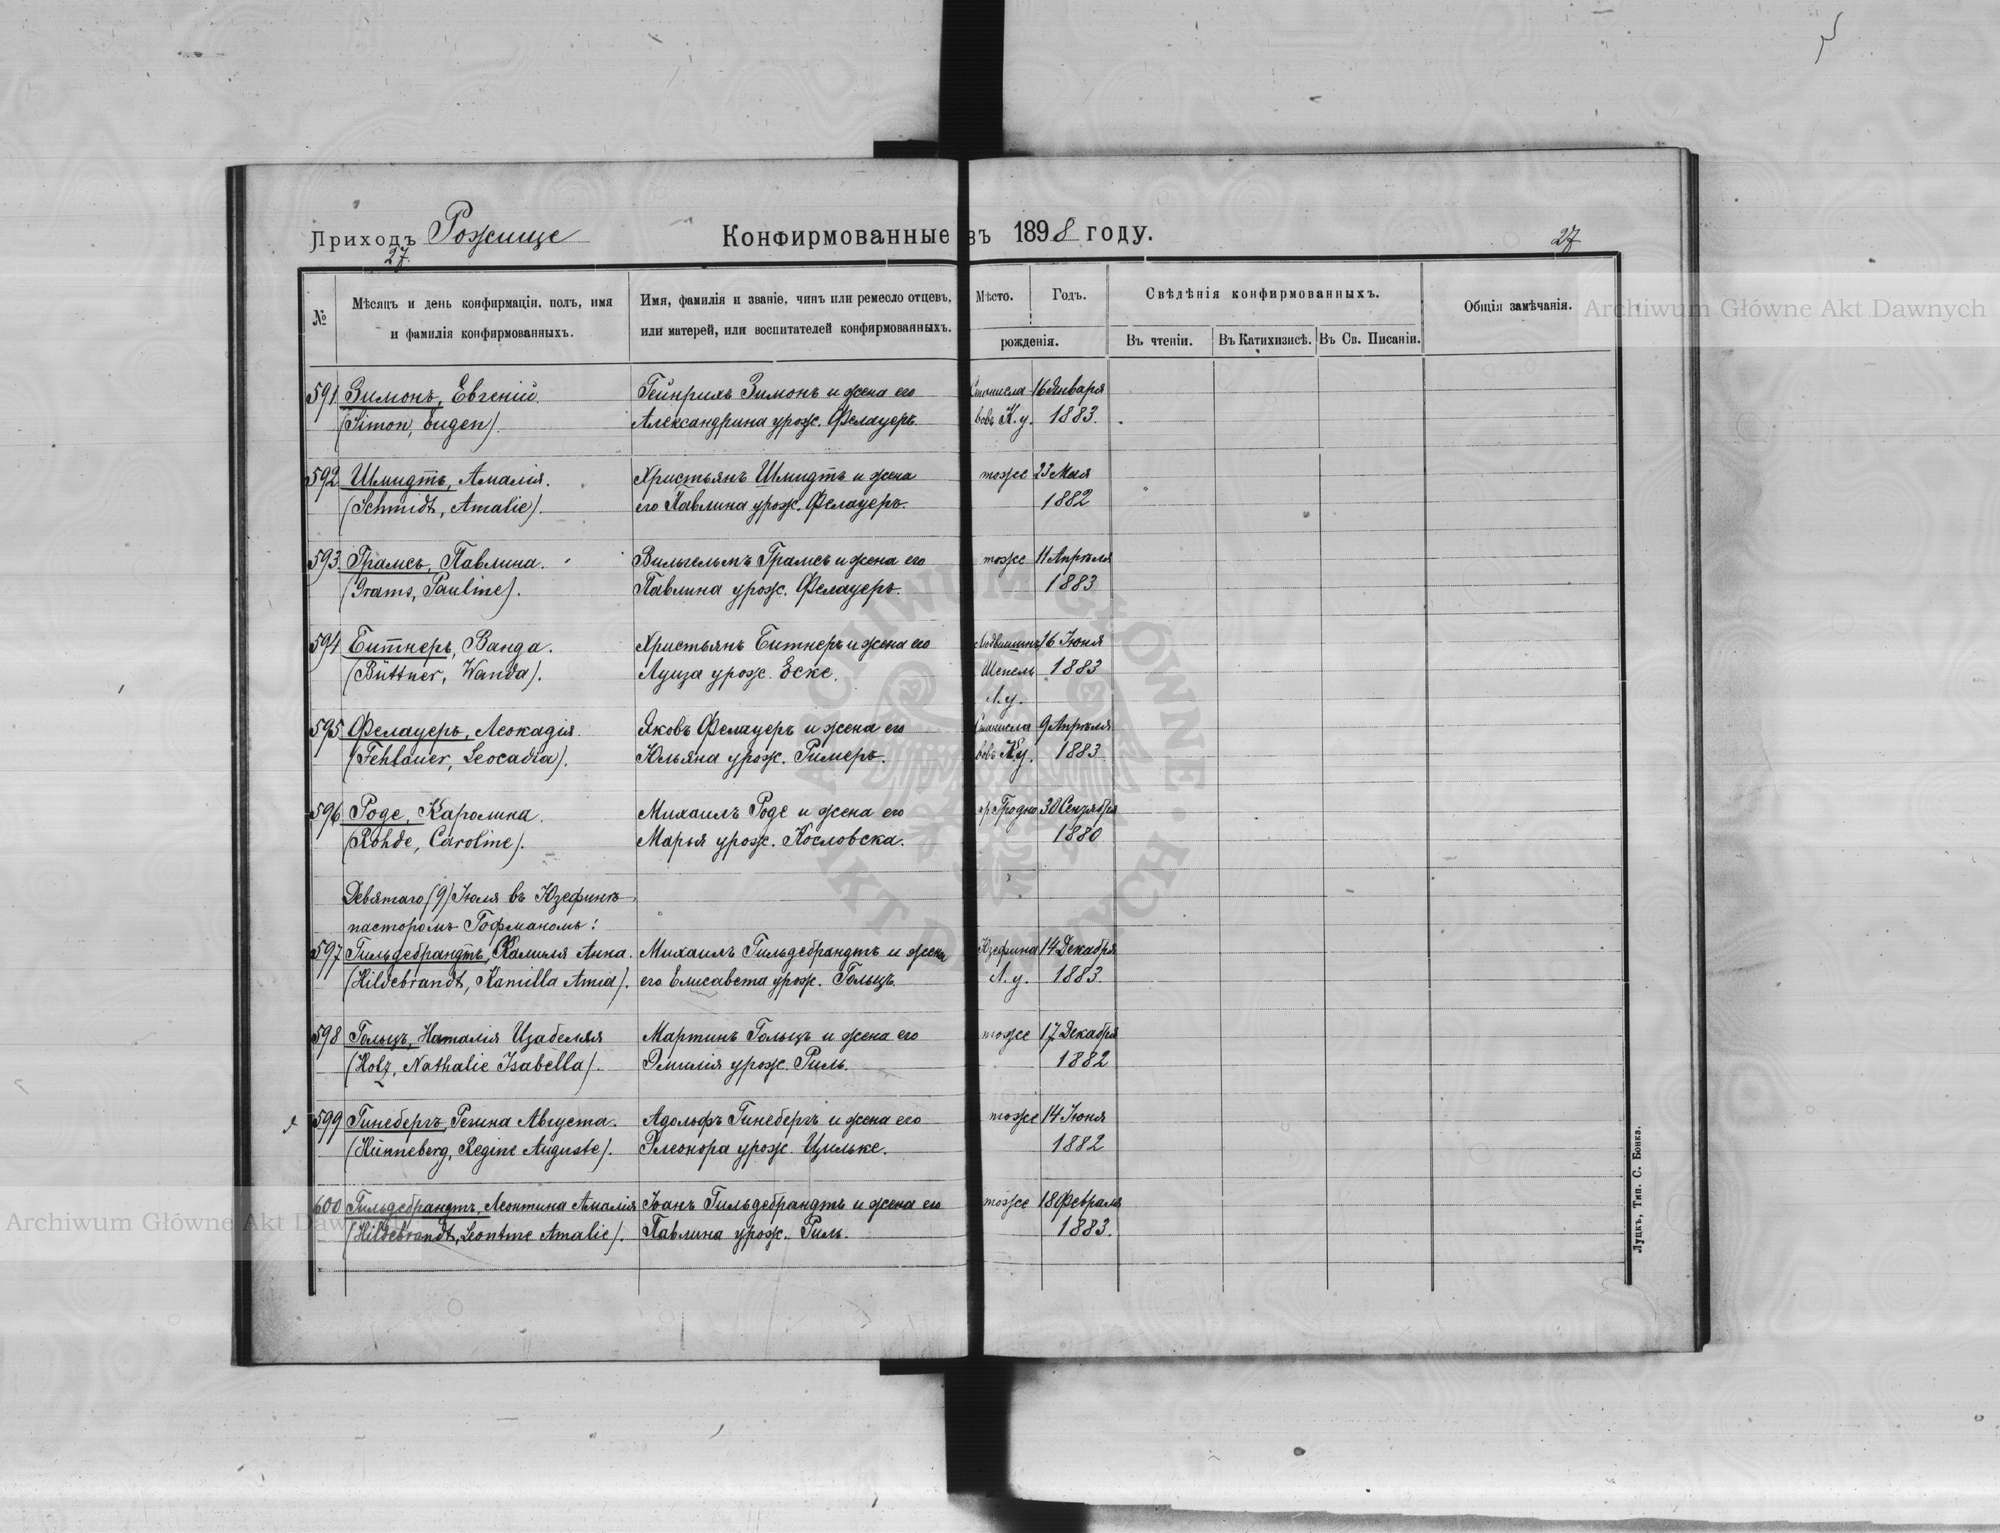 Приходъ Рожище
27.
Конфирмованные въ 1898 году.
27
№
Мѣсяцъ и день конфирмаціи, полъ, имя
и фамилія конфирмованныхъ.
Имя, фамилія и званіе, чинъ или ремесло отцевъ,
или матерей, или воспитателей конфирмованныхъ.
Мѣсто.
Годъ.
рожденія.
Свѣдѣнія конфирмованныхъ.
Въ чтеніи.
Въ Катихизисѣ.
Въ Св. Писаніи.
Общія замѣчанія.
591 Зимонъ, Евгеній. Гейнрихъ Зимонъ и жена его Станисла 16 Января
(Simon, Eugen). Александрина урож. Фелауеръ. вовъ К. у. 1883.
592 Шмидтъ, Амалія. Христьянъ Шмидтъ и жена тоже 23 Мая
(Schmidt, Amalie). его Павлина урож. Фелауеръ. 1882
593. Грамсъ, Павлина. Вильгельмъ Грамсъ и жена его тоже 11 Апрѣля
(Grams, Pauline). Павлина урож. Фелауеръ. 1883
594 Битнеръ, Ванда. Христьянъ Битнеръ и жена его 16 Іюня
(Büttner, Wanda). Луиза урож. Еске. Шепель 1883
Л. у.
595 Фелауеръ, Леокадія. Яковъ Фелауеръ и жена его Станисла 9 Апрѣля
(Fehlauer, Leocadia). Юльяна урож. Римеръ. вовъ К. у. 1883
596 Роде, Каролина. Михаилъ Роде и жена его Гродно 30 Сентября
(Rohde, Caroline). Марья урож. Кословска. 1880
Девятаго (9) Іюля въ Юзефинѣ
пасторомъ Гофманомъ:
597 Гильдебрандтъ, Камилля Анна. Михаилъ Гильдебрандтъ и жена Юзефина 14 Декабря
(Hildebrandt, Kamilla Anna). его Елисавета урож. Гольцъ. Л. у. 1883.
598 Гольцъ, Наталія Изабелля Мартинъ Гольцъ и жена его тоже 17 Декабря
(Holz, Nathalie Isabella). Эмилія урож. Риль. 1882
599 Гинебергъ, Регина Августа. Адольфъ Гинебергъ и жена его тоже 14 Іюня
(Hünneberg, Regine Auguste). Элеонора урож. Цильке. 1882
600 Гильдебрандтъ, Леонтина Амалія Іоанъ Гильдебрандтъ и жена его тоже 18 Февраля
(Hildebrandt, Leontine Amalie). Павлина урож. Риль. 1883.
Луцкъ, Тип. С. Бонка.
Archiwum Główne Akt Dawnych
Archiwum Główne Akt Dawnych
ARCHIWUM GŁÓWNE AKT DAWNYCH